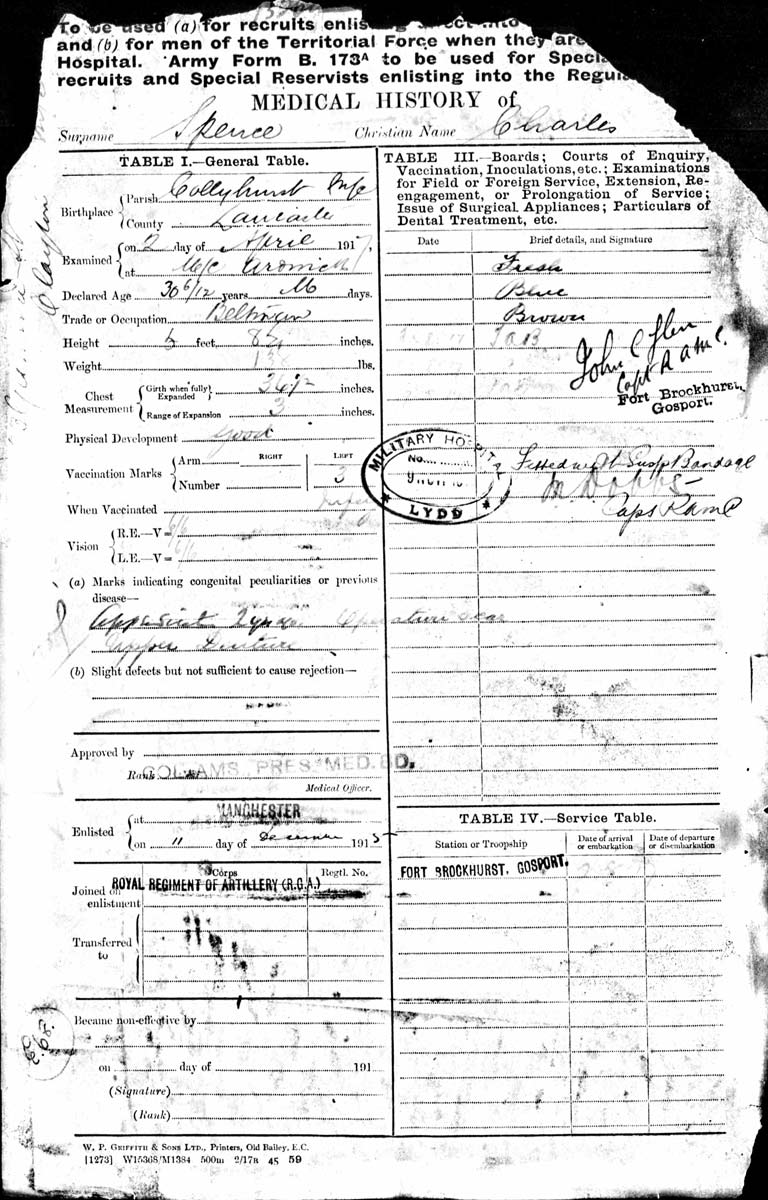 To be used (a) for recruits enlisting direct into
and (b) for men of the Territorial Force when they are
Hospital. Army Form B. 173A to be used for Special
recruits and Special Reservists enlisting into the Regular
MEDICAL HISTORY of
Surname Spence Christian Name Charles
TABLE I.—General Table.
Birthplace { Parish Collyhurst M/c
County Lancaster
Examined { on 2 day of April 1917,
at M/c Ardwick
Declared Age 30 6/12 years days.
Trade or Occupation
Height 5 feet, 8 inches.
Weight lbs.
Chest Measurement { Girth when fully Expanded 36 1/2 inches.
Range of Expansion 3 inches.
Physical Development good
Vaccination Marks { Arm RIGHT LEFT
Number 3
When Vaccinated
Vision { R.E.—V=
L.E.—V=
(a) Marks indicating congenital peculiarities or previous
disease—
Operation scar
(b) Slight defects but not sufficient to cause rejection—
Approved by
Rank COL. AMS PRES. MED. BD.
Medical Officer.
Enlisted { at MANCHESTER
on 11 day of December 1915
Corps Regtl. No.
Joined on enlistment ROYAL REGIMENT OF ARTILLERY (R.G.A.)
Transferred to
Became non-effective by
on day of 191
(Signature)
(Rank)
W. P. GRIFFITH & SONS LTD., Printers, Old Bailey, E.C.
[1273] W15368/M1384 500m 2/17B 45 59
TABLE III.—Boards; Courts of Enquiry,
Vaccination, Inoculations, etc.; Examinations
for Field or Foreign Service, Extension, Re-
engagement, or Prolongation of Service;
Issue of Surgical Appliances; Particulars of
Dental Treatment, etc.
Date Brief details, and Signature
Fresh
Blue
Brown
John C Glen
Capt RAMC.
Fort Brockhurst,
Gosport.
MILITARY HOSPITAL
No.
LYDD
Fitted with Susp Bandage
Capt RAMC
TABLE IV.—Service Table.
Station or Troopship Date of arrival or embarkation Date of departure or disembarkation
FORT BROCKHURST, GOSPORT.
Clayton